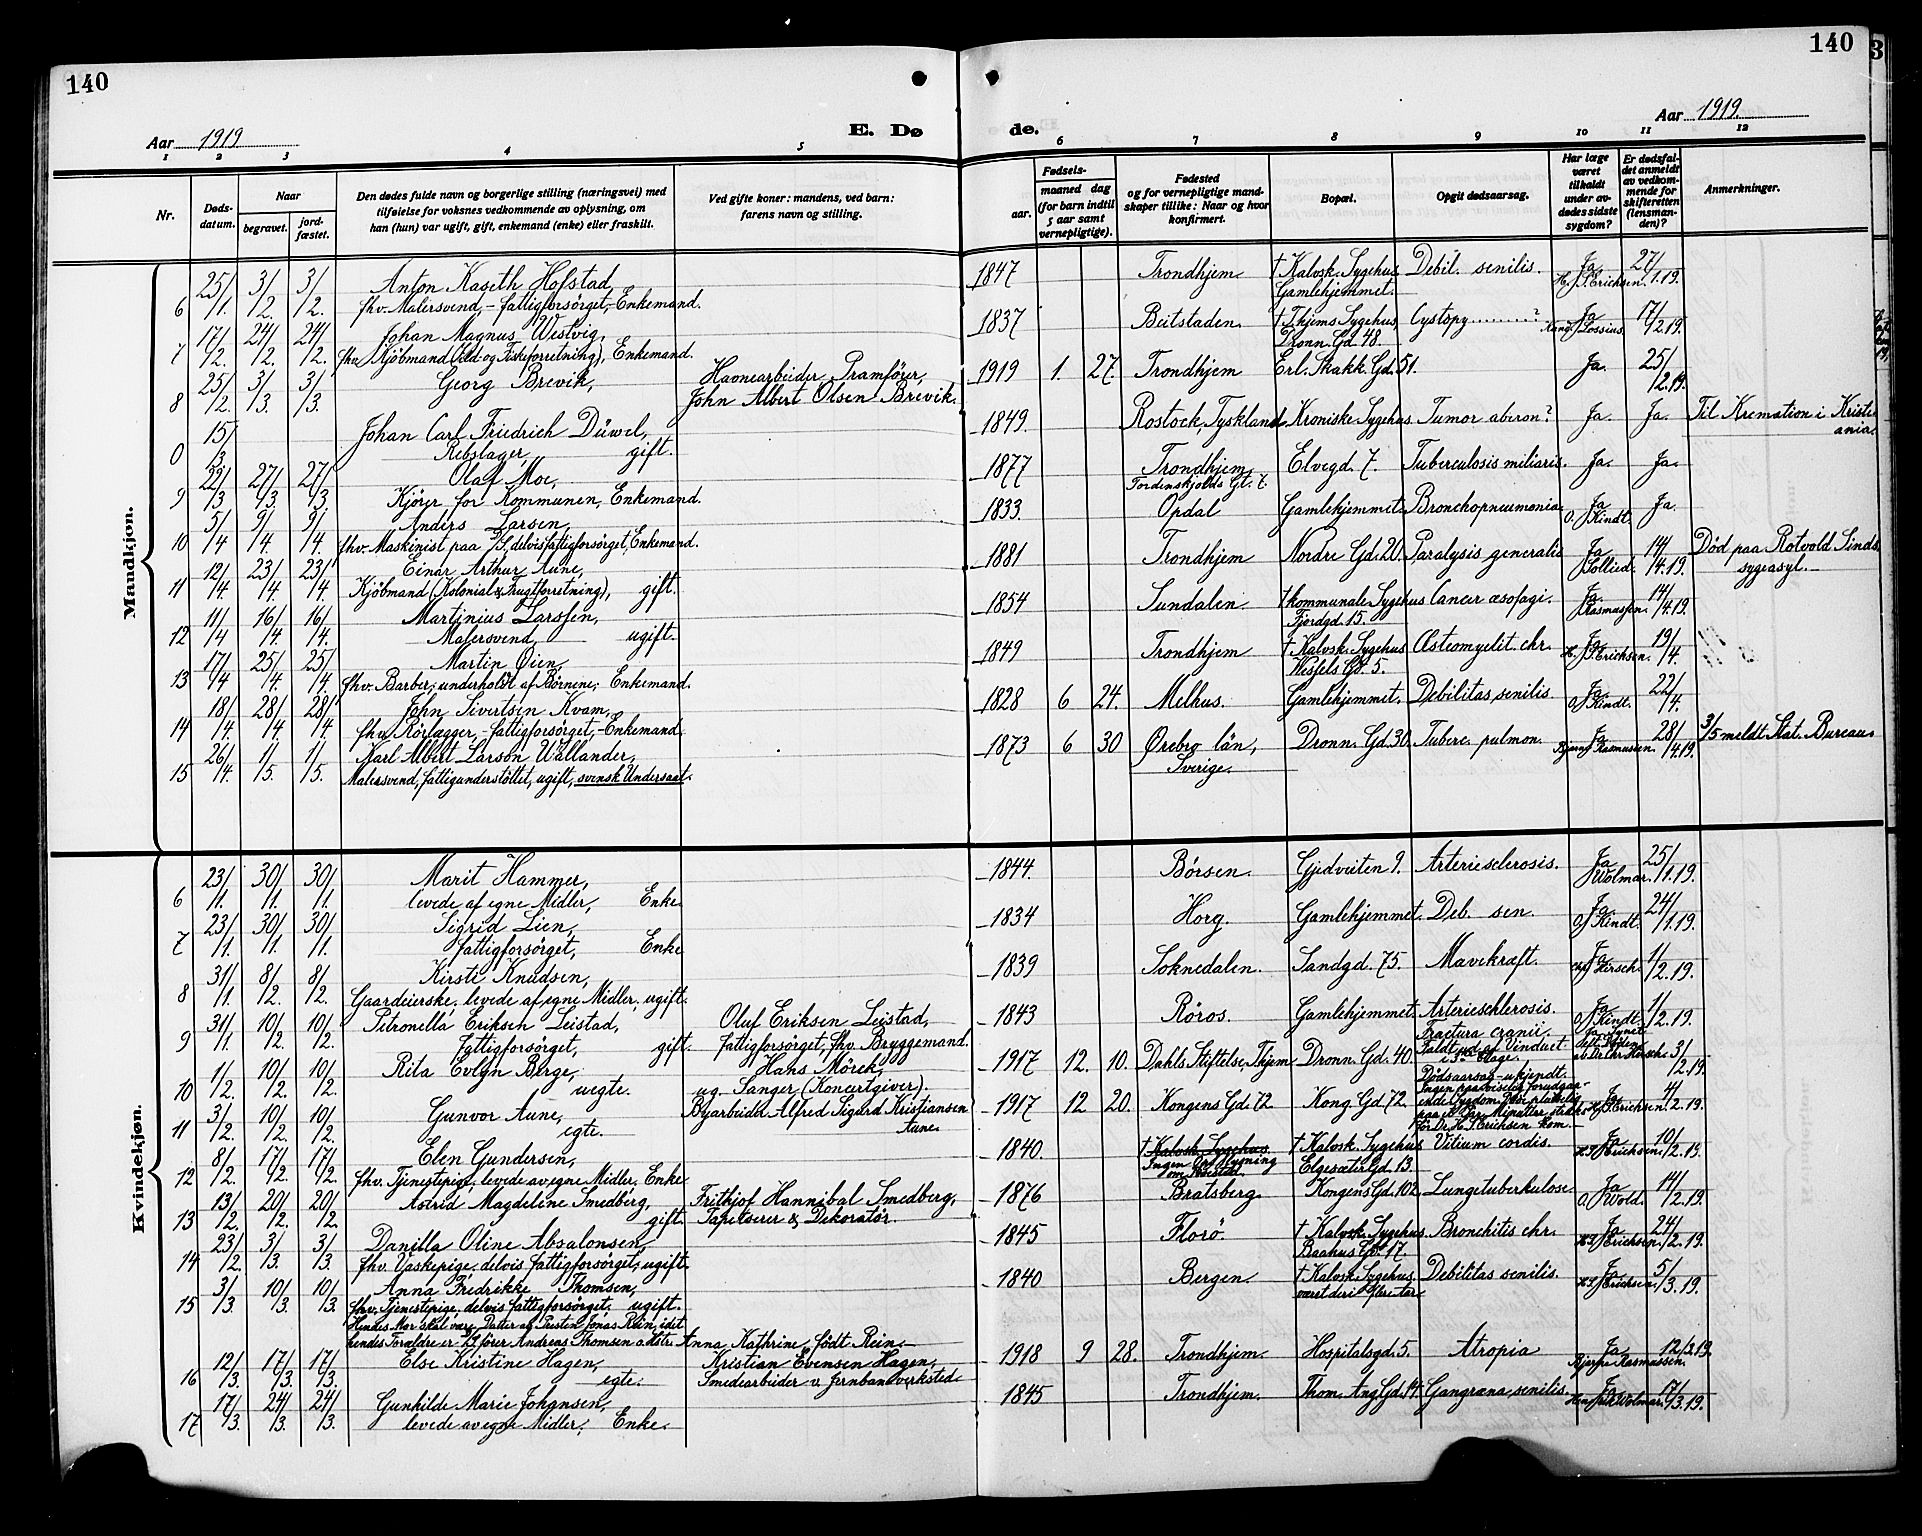 140
140
Aar 1919
E. Dø
de.
Aar 1919.
1 2 3 4 5 6 7 8 9 10 11 12
Nr.
Døds-
datum.
Naar
begravet.
jord-
fæstet.
Den dødes fulde navn og borgerlige stilling (næringsvei) med
tilføielse for voksnes vedkommende av oplysning, om
han (hun) var ugift, gift, enkemand (enke) eller fraskilt.
Ved gifte koner: mandens, ved barn:
farens navn og stilling.
Fødsels-
aar.
maaned dag
(for barn indtil
5 aar samt
vernepligtige).
Fødested
og for vernepligtige mand-
skaper tillike: Naar og hvor
konfirmert.
Bopæl.
Opgit dødsaarsag.
Har læge
været
tilkaldt
under av-
dødes sidste
sygdom?
Er dødsfal-
det anmeldt
av vedkom-
mende for
skifteretten
(lensman-
den)?
Anmerkninger.
Mandkjøn.
6 25/1. 3/2. 3/2. Anton Kaseth Hofstad, 1847 Trondhjem † Kalvsk. Sygehus Debil. senilis. Ja 27/1.19.
fhv. Malersvend, - fattigforsørget, - Enkemand. Gamlehjemmet. H. J. S. Erichsen.
7 17/2. 24/2. 24/2. Johan Magnus Westvig, 1837 Beitstaden. † Thjems Sygehus Cystopy.........? Ja 17/2.19.
fhv. Kjöbmand (Sild- og Fiskeforretning), Enkemand. Dronn. Gd 48. Lossius.
8 25/2. 3/3. 3/3. Georg Brevik, Havnearbeider, Pramförer, 1919 1. 27. Trondhjem Erl. Skakk. Gd. 51. Ja. 25/2.19.
John Albert Olsen Brevik.
0 15/3. Johan Carl Friedrich Düwel, 1849. Rostock, Tyskland Kroniske Sygehus Tumor aberon? Ja. Ja. Til Kremation i Kristi-
Rebslager, gift. ania.
9 22/3 27/3. 27/3. Olaf Moe, 1877 Trondhjem, Elvegd. 7. Tuberculosis miliaris. Ja. Ja.
Kjörer for Kommunen, Enkemand. Tordenskjolds Gt. 7.
10 5/4 9/4. 9/4. Anders Larsen, 1833. Opdal Gamlehjemmet. Bronchopneumonia Ja Ja.
fhv. Maskinist paa D/S, delvis fattigforsørget, Enkemand. O. J. Kindt.
11 12/4. 23/4. 23/4. Einar Arthur Aune, 1881 Trondhjem Nordre Gd. 20. Paralysis generalis Ja 14/4.19. Död paa Rotvold Sinds-
Kjöbmand (Kolonial & Frugtforretning), gift. Sollied. sygeasyl.
12 11/4 16/4. 16/4. Martinius Larssen, 1854 Sundalen. † kommunale Sygehus Cancer æsofagi. Ja. 14/4.19.
Malersvend, ugift. Fjordgd 15. Rasmussen.
13 17/4 25/4. 25/4. Martin Öien, 1849 Trondhjem † Kalvsk. Sygehus Osteomyelit. chr. Ja 19/4.
fhv. Barber, underholdt af Börnene, Enkemand. Wessels Gd. 5. H. J. S. Erichsen.
14 18/4. 28/4. 28/4. John Sivertsen Kvam, 1828 6 24. Melhus. Gamlehjemmet. Debilitas senilis Ja. 22/4.
fhv. Rörlægger, - fattigforsørget, - Enkemand. O. J. Kindt.
15 26/4. 1/5. 1/5. Karl Albert Larson Wållander, 1873 6 30 Örebro län, Dronn. Gd. 30. Tuberc. pulmon. Ja 28/4.19. 3/5 meldt Stat. Bureau
Malersvend, fattigunderstöttet, ugift, svensk Undersaat. Sverige. Bjarne Rasmussen.
Kvindekjøn.
6 23/1. 30/1. 30/1. Marit Hammer, 1844. Börsen. Gjedveiten 9. Arteriesclerosis. Ja 25/1.19.
levede af egne Midler, Enke. J. Wolmar.
7 23/1. 30/1. 30/1. Sigrid Lien, 1834 Horg. Gamlehjemmet. Deb. sen. Ja. 24/1.19.
fattigforsørget, Enke O. J. Kindt.
8 31/1. 8/2. 8/2. Kirsti Knudsen, 1839 Soknedalen. Sandgd. 75. Mavekræft. Ja 1/2.19.
Gaardeierske, levede af egne Midler, ugift. Chr. Hirsch.
9 31/1. 10/2. 10/2. Petronella Eriksen Leistad, Oluf Eriksen Leistad, 1843 Röros. Gamlehjemmet. Arteriesklerosis. Ja 1/2.19.
fattigforsørget, gift. fattigforsørget, fhv. Bryggemand. O. J. Kindt.
10 1/2. 10/2. 10/2. Rita Evelyn Berge, Hans Mörck, 1917 12. 10. Dahls Stiftelse, Thjem Dronn. Gd. 40. Fractura cranii. Faldt ud af Vinduet i 3die Etage. 3/2.19.
uegte. ug. Sanger (Koncertgiver).
11 3/2. 10/2. 10/2. Gunvor Aune, Byarbeider Alfred Sigurd Kristiansen 1917 12 20. Kongens Gd. 72 Kong. Gd 72. Dødsaarsag - ukjendt. Ja 4/2.19.
egte. Aune. för Dr. H. J. S. Erichsen kom. H. J. S. Erichsen.
12 8/2. 17/2. 17/2. Elen Gundersen, 1840. † Kalvsk. Sygehus. † Kalvsk. Sygehus Vitium cordis. Ja 10/2.19.
fhv. Tjenestepige, levede av egne Midler, Enke Ingen Oplysning om Fødested. Elgesæter Gd. 13. H. J. S. Erichsen.
13 13/2. 20/2. 20/2. Astrid Magdeline Smedberg, Frithjof Hannibal Smedberg, 1876 Bratsberg. Kongens Gd. 102. Lungetuberkulose. Ja 14/2.19.
gift. Tapetserer & Dekoratör. O. J. Wold.
14 23/2. 3/3. 3/3. Danilla Oline Absalonsen, 1845 Florö. † Kalvsk. Sygehus Bronchitis chr. Ja 24/2.19.
fhv. Vaskepige, delvis fattigforsørget, ugift. Baahus Gd. 17. H. J. S. Erichsen.
15 3/3. 10/3. 10/3. Anna Fredrikke Thomsen, 1840 Bergen. † Kalvsk. Sygehus, Debilitas senilis. Ja 5/3.19.
fhv. Tjenestepige, delvis fattigforsørget, ugift. været der i flere Aar. H. J. S. Erichsen.
Hendes Mor skal være Datter af Presten Jonas Rein, idet
hendes Forældre er Andreas Thomsen o. Hstr. Anna Kathrine født Rein.
16 12/3. 17/3. 17/3. Else Kristine Hagen, Kristian Evensen Hagen, 1918 9 28. Trondhjem. Hospitalsgd. 5. Atropia Ja 12/3.19.
egte. Smedearbeider v. Jernbaneverksted. Bjarne Rasmussen.
17 17/3. 24/3. 24/3. Gunhilde Marie Johansen, 1845 Trondhjem. Thom. Ang. Gd. 14. Gangræna senilis. Ja 17/3.19.
levede av egne Midler, Enke. Wolmar.